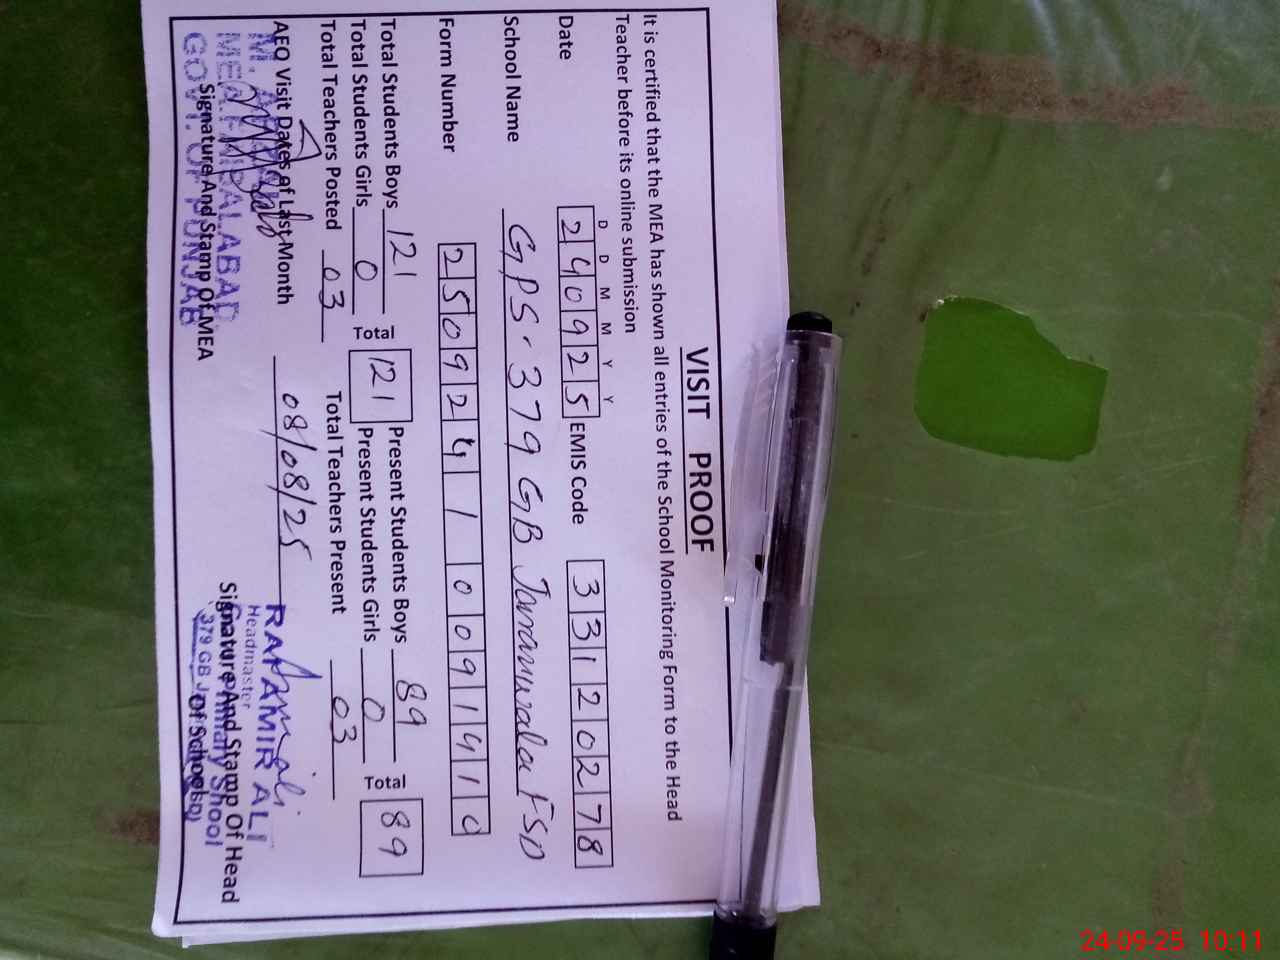 VISIT PROOF
It is certified that the MEA has shown all entries of the School Monitoring Form to the Head
Teacher before its online submission
D D M M Y Y
Date 240925 EMIS Code 33120278
School Name GPS. 379 GB Jaranwala FSD
Form Number 25092410091410
Total Students Boys 121 Total 121 Present Students Boys 89 Total 89
Total Students Girls 0 Present Students Girls 0
Total Teachers Posted 03 Total Teachers Present 03
AEO Visit Dates of Last Month 08/08/25
Signature And Stamp Of MEA
M.
MEA FAISALABAD
GOVT. OF PUNJAB
RAI AMIR ALI
Headmaster
Primary School
379 GB
Signature And Stamp Of Head
Of School
24-09-25 10:11